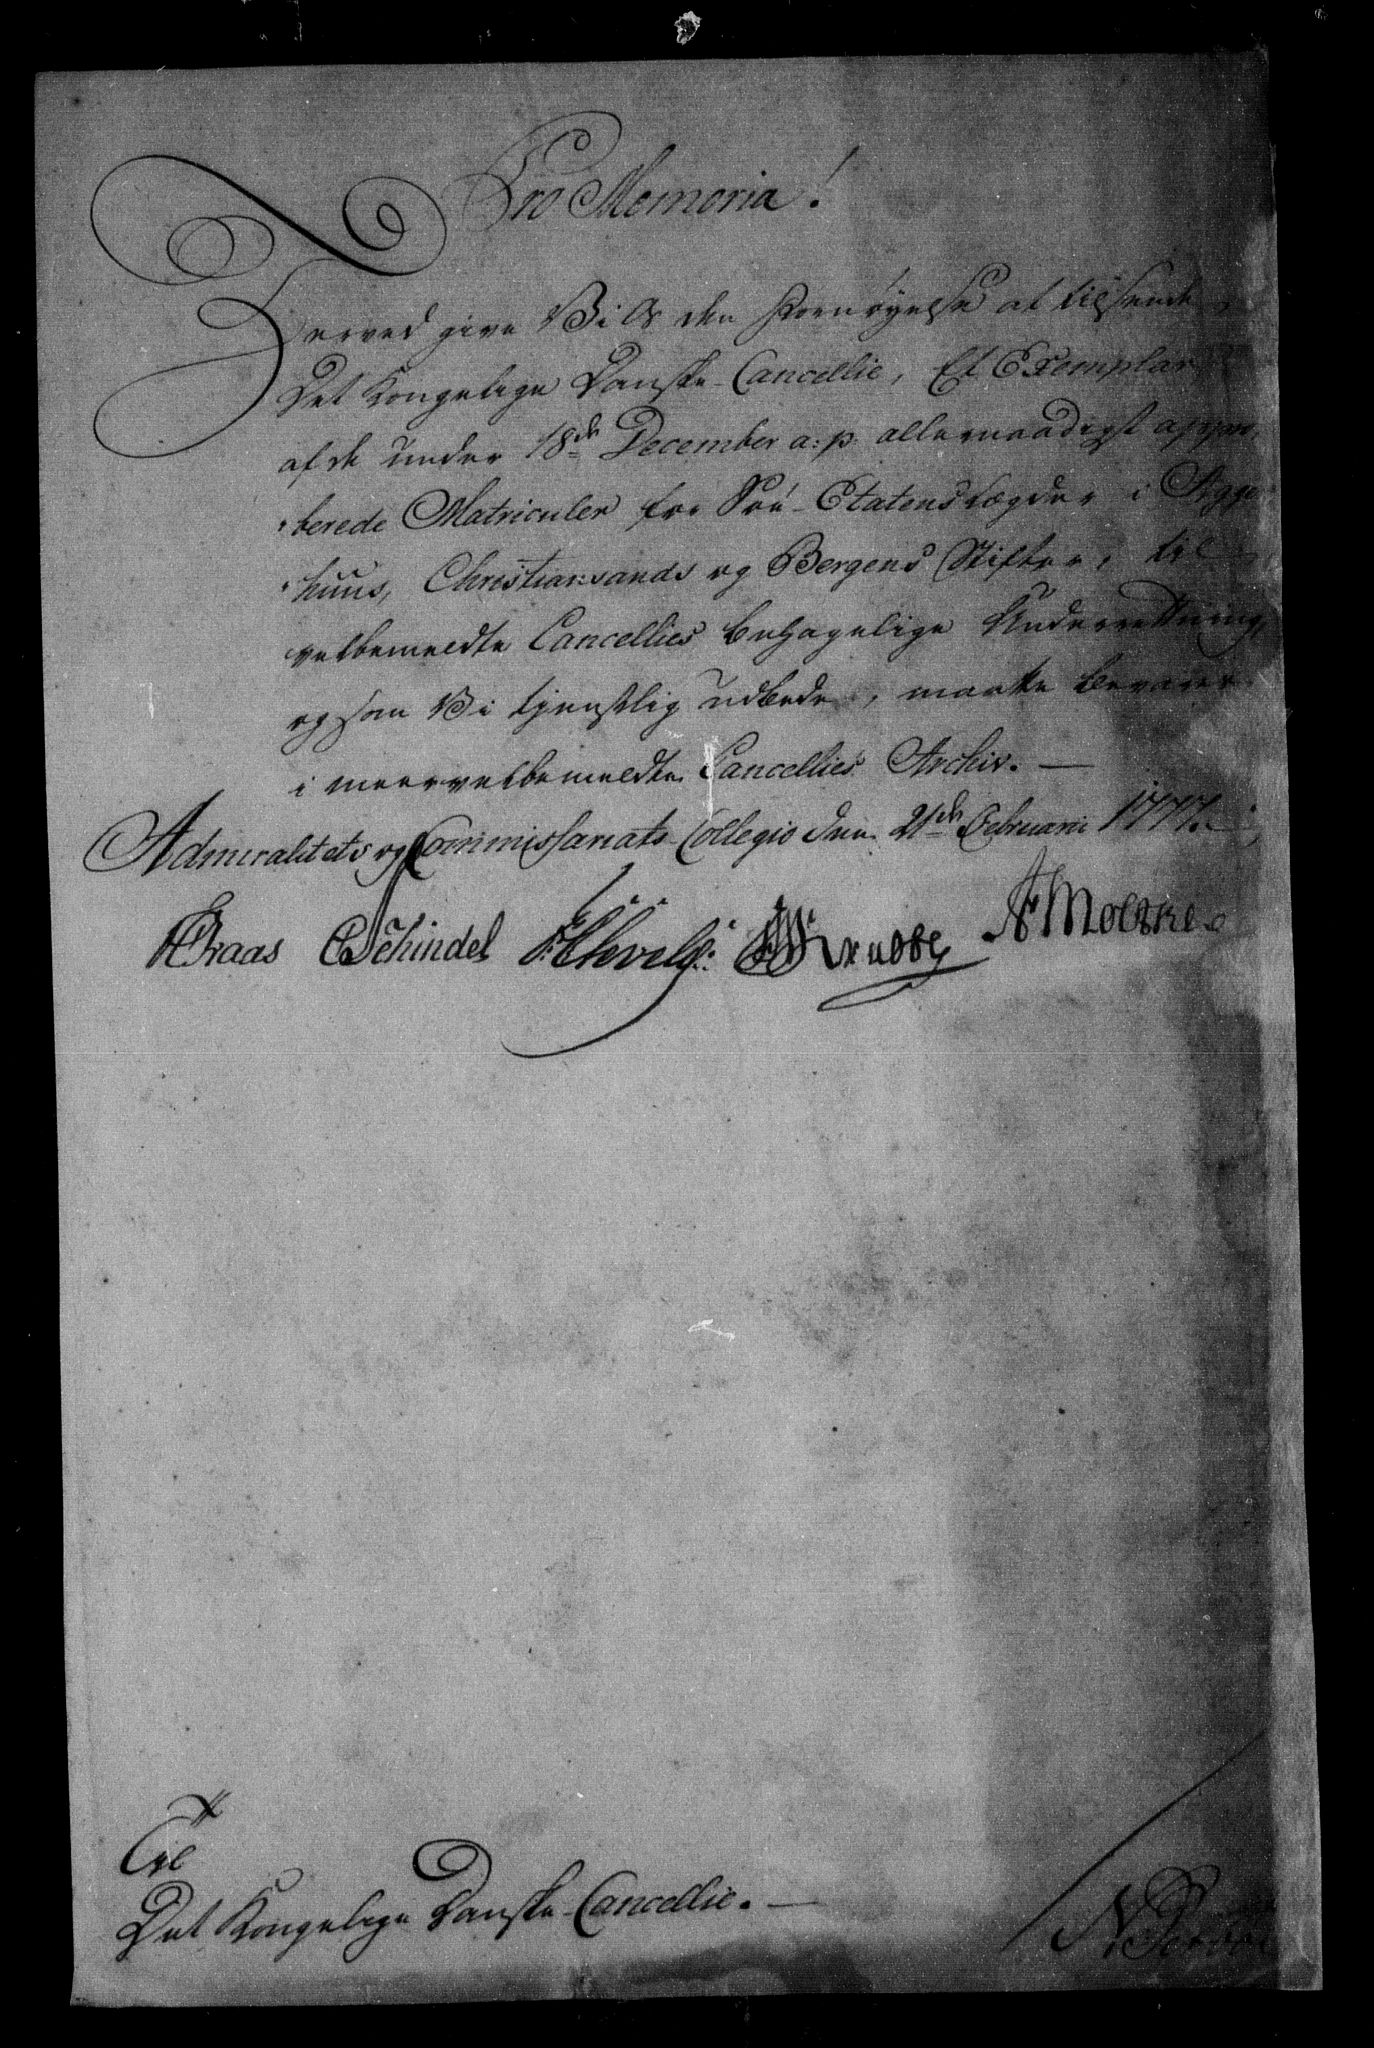 Pro Memoria!
Herved give Vi Os den Fornøyelse at tilsende
Det Kongelige Danske Cancellie, Et Exemplar
af de under 18de December a: p: allernaadigst appro,
,berede Matriculer for Søe-Etatens Lægder i Agger
,huus, Christiansands og Bergens Stifter, til
velbemeldte Cancellies behagelige Underretning,
og som Vi tjenstlig udbede, maatte bevares
i meervelbemeldte Cancellies Archiv. —
Admiralitets og Commissariats Collegio den 21de Februarii 1777.
Kaas Schindel Krabbe AMoltke
Til
Det Kongelige Danske Cancellie. —